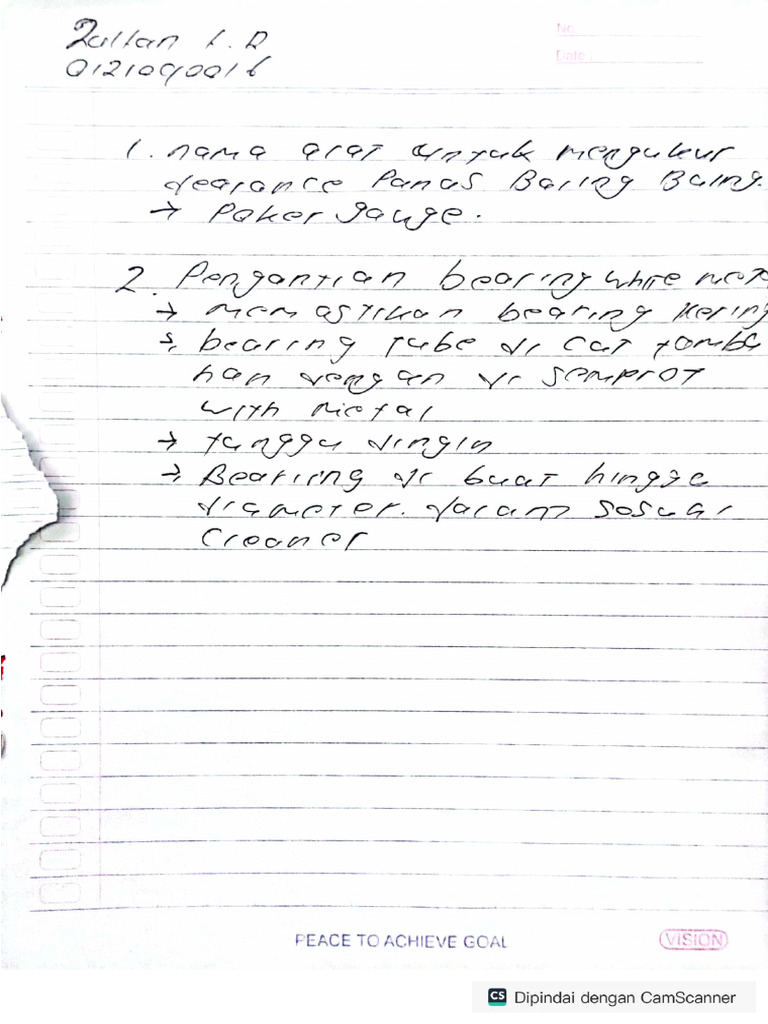 Zulfan L.R
0121090016
No.
Date :
1. nama alat untuk mengukur
clearance Panas Baling Baling.
→ Poker gauge.
2. Pengantian bearing white met
→ memastikan bearing kering
→ bearing tube di cat tamba
han dengan di semprot
with metal
→ tunggu dingin
→ Bearing di buat hingga
diameter. dalam sesuai
Creaner
PEACE TO ACHIEVE GOAL
VISION
CS Dipindai dengan CamScanner